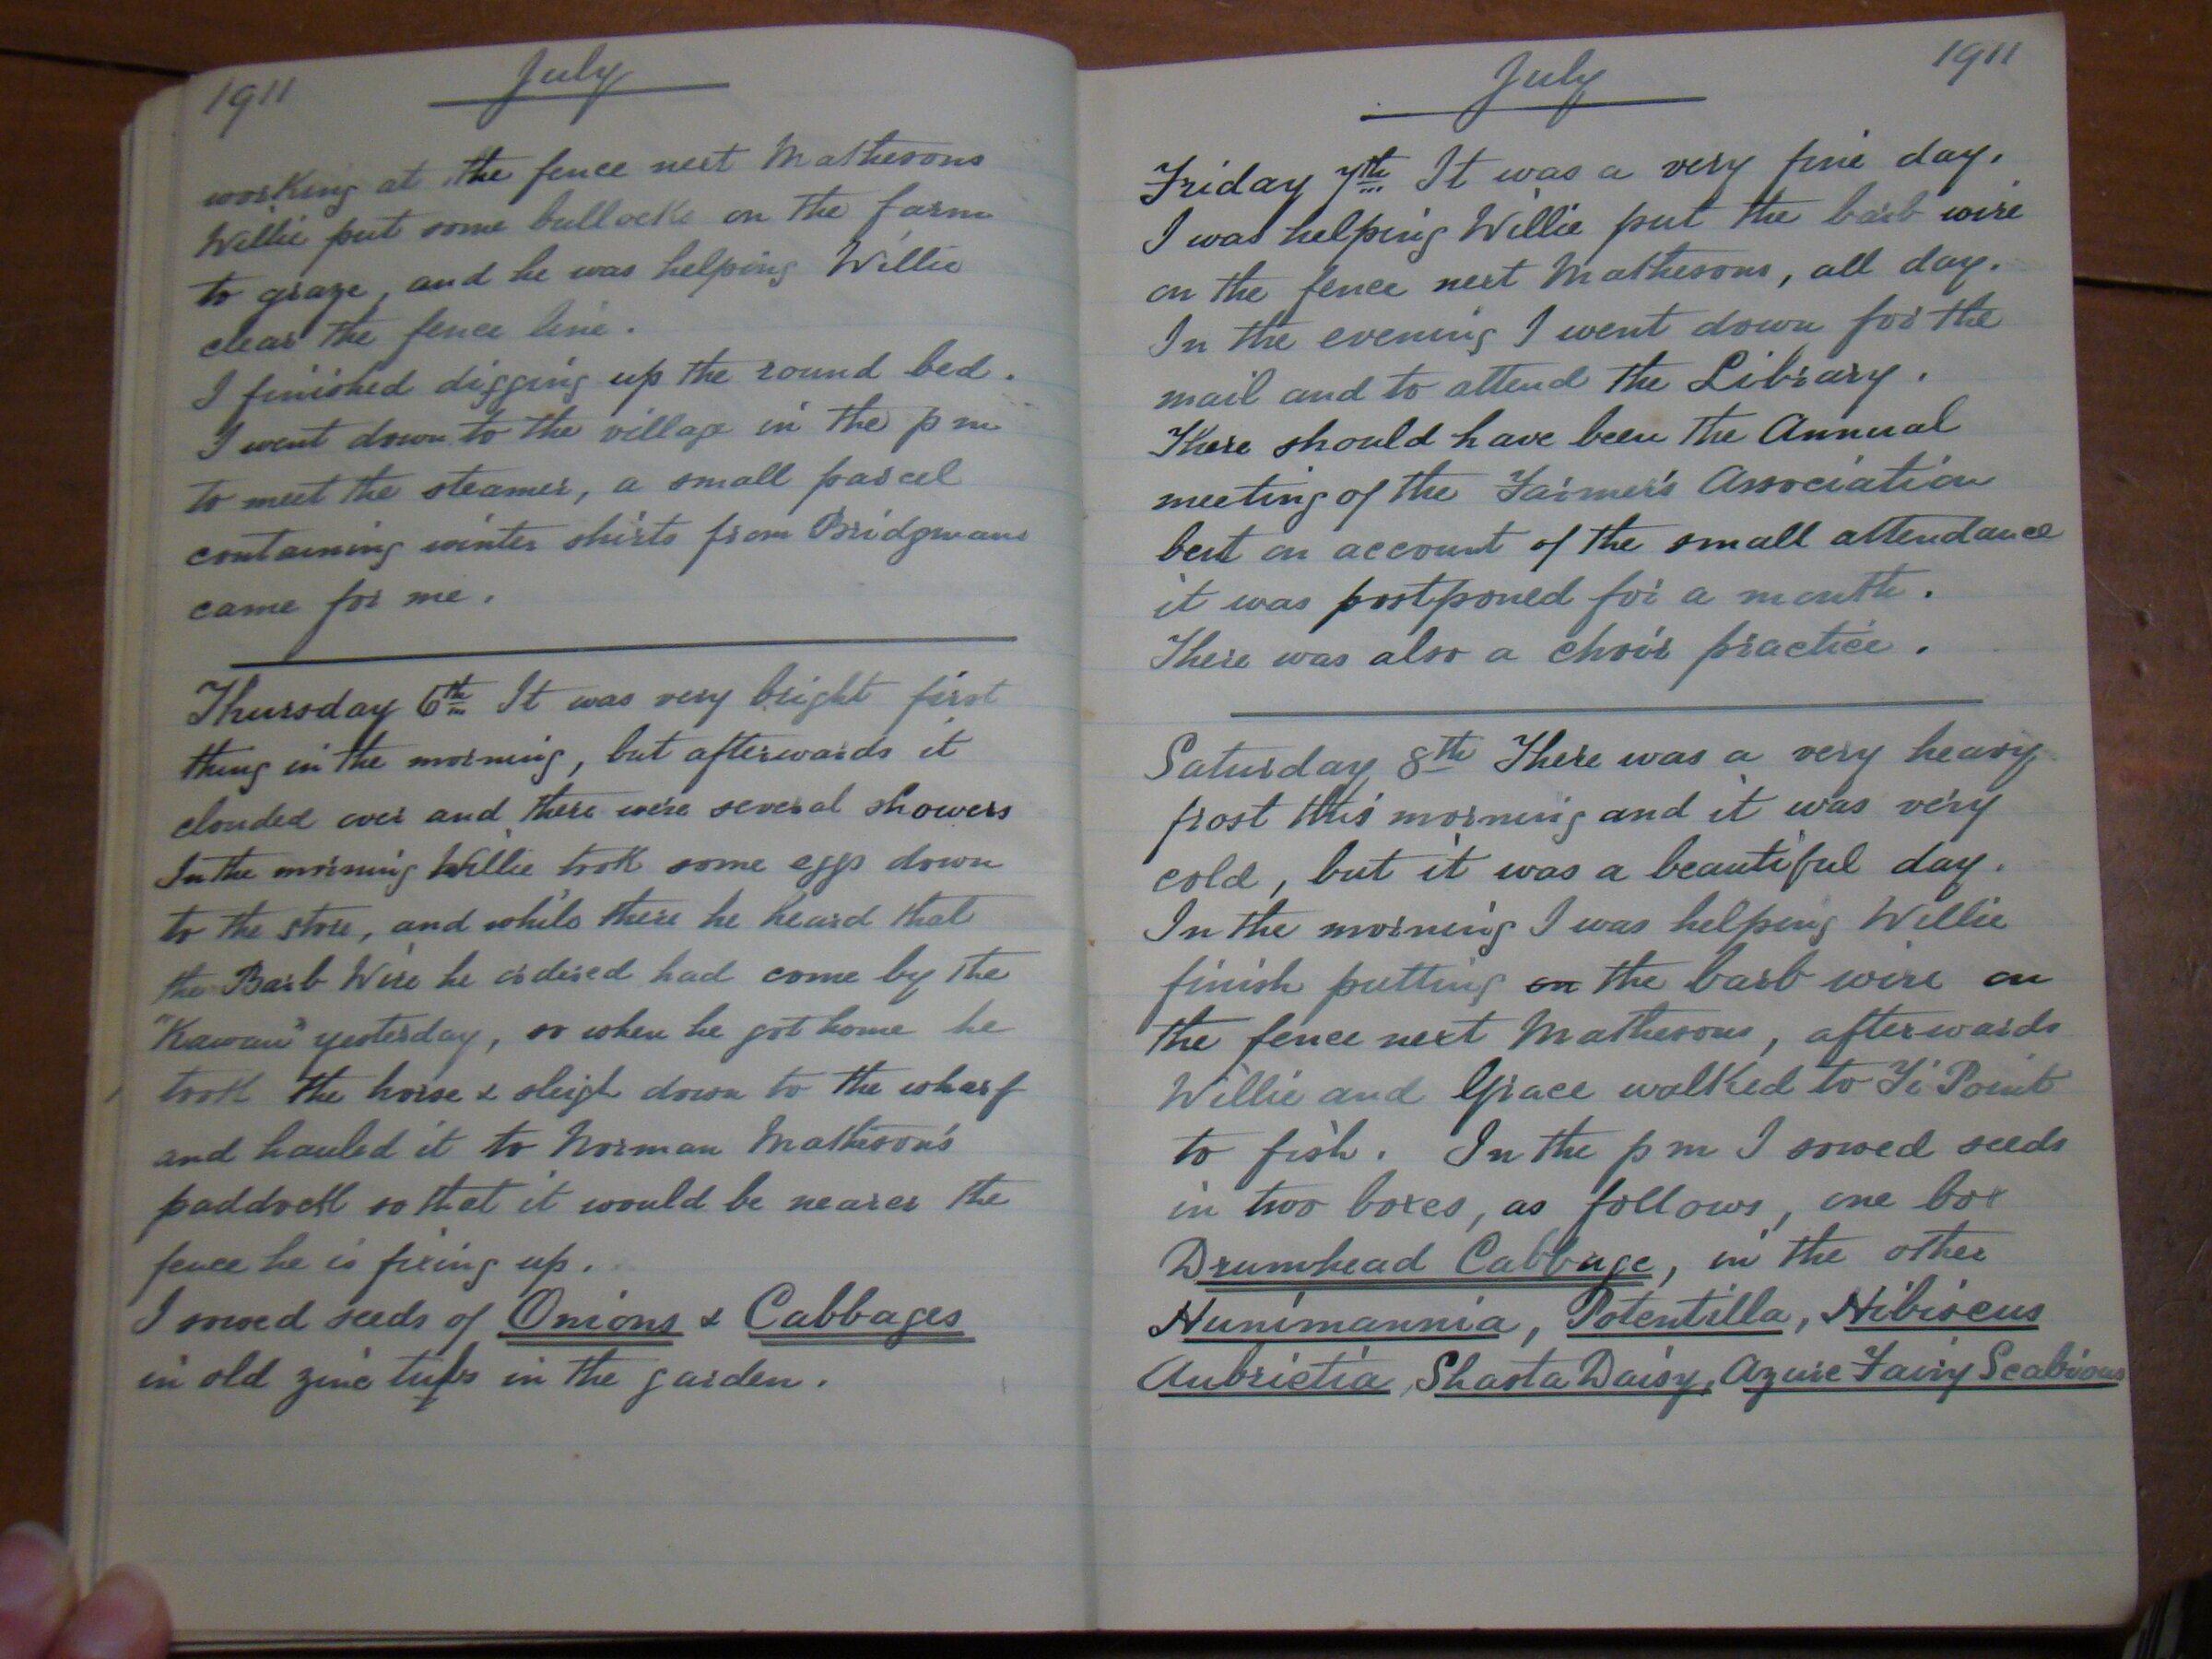 1911 July
working at the fence next Mathesons
Willie put some bullocks on the farm
to graze, and he was helping Willie
clear the fence line.
I finished digging up the round bed.
I went down to the village in the pm
to meet the steamer, a small parcel
containing winter shirts from Bridgmans
came for me.
Thursday 6th It was very bright first
thing in the morning, but afterwards it
clouded over and there were several showers
In the morning Willie took some eggs down
to the store, and while there he heard that
the Barb Wire he ordered had come by the
"Kawau" yesterday, so when he got home he
took the horse & sleigh down to the wharf
and hauled it to Norman Matheson's
paddock so that it would be nearer the
fence he is fixing up.
I sowed seeds of Onions & Cabbages
in old zinc tubs in the garden.
July 1911
Friday 7th It was a very fine day.
I was helping Willie put the barb wire
on the fence next Mathesons, all day.
In the evening I went down for the
mail and to attend the Library.
There should have been the Annual
meeting of the Farmer's Association
but on account of the small attendance
it was postponed for a month.
There was also a choir practice.
Saturday 8th There was a very heavy
frost this morning and it was very
cold, but it was a beautiful day.
In the morning I was helping Willie
finish putting on the barb wire on
the fence next Mathesons, afterwards
Willie and Grace walked to Ti Point
to fish. In the pm I sowed seeds
in two boxes, as follows, one box
Drumhead Cabbage, in the other
Hunimannia, Potentilla, Hibiscus
Aubrietia, Shasta Daisy, Azure Fairy Scabious